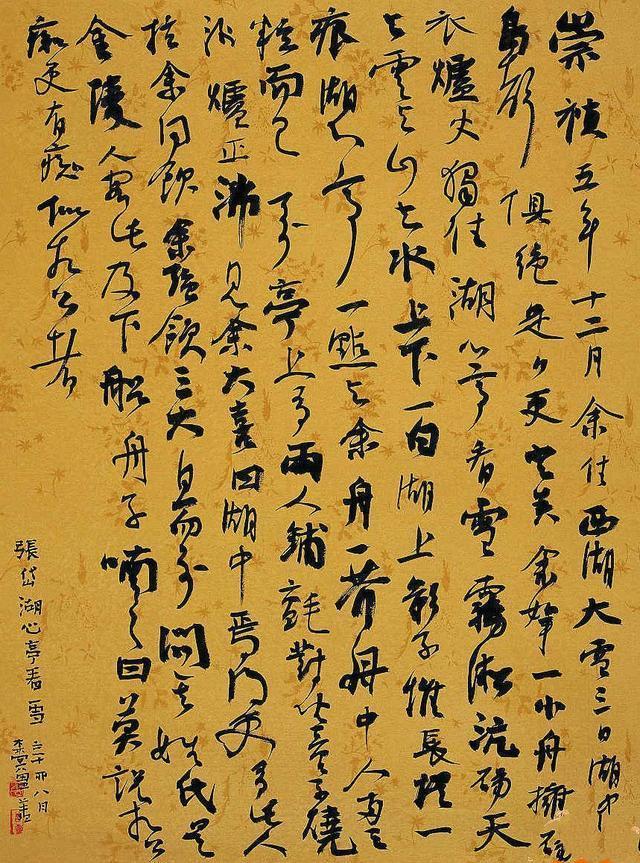 崇禎五年十二月余住西湖大雪三日湖中
鳥聲俱絕是夕更定矣余拏一小舟擁毳
衣爐火獨往湖心亭看雪霧淞沆碭天
與雲與山與水上下一白湖上影子惟長堤一
痕湖心亭一點與余舟一芥舟中人兩三
粒而已到亭上有兩人鋪氈對坐一童子燒
酒爐正沸見余大喜曰湖中焉得更有此人
拉余同飲余強飲三大白而別問其姓氏是
金陵人客此及下船舟子喃喃曰莫說相公
痴更有痴似相公者
張岱湖心亭看雪 八月